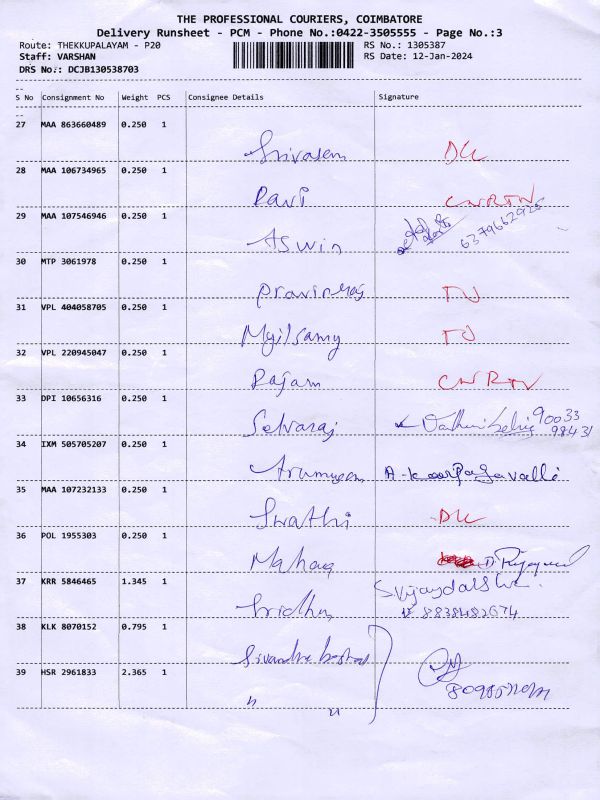 THE PROFESSIONAL COURIERS, COIMBATORE
Delivery Runsheet - PCM - Phone No.:0422-3505555 - Page No.:3
Route: THEKKUPALAYAM - P20 RS No.: 1305387
Staff: VARSHAN RS Date: 12-Jan-2024
DRS No.: DCJB130538703
S No Consignment No Weight PCS Consignee Details Signature
27 MAA 863660489 0.250 1
Srivasan DLC
28 MAA 106734965 0.250 1
Ravi CNRTN
29 MAA 107546946 0.250 1
Aswin 6379662925
30 MTP 3061978 0.250 1
Pravinraj TU
31 VPL 404058705 0.250 1
Myilsamy TU
32 VPL 220945047 0.250 1
Rajam CNRTN
33 DPI 10656316 0.250 1
Selvaraj 90033
98431
34 IXM 505705207 0.250 1
Arumugam A-karpagavalli
35 MAA 107232133 0.250 1
Swathi DLC
36 POL 1955303 0.250 1
37 KRR 5846465 1.345 1
Sridhar 8838482674
38 KLK 8070152 0.795 1
39 HSR 2961833 2.365 1
" "